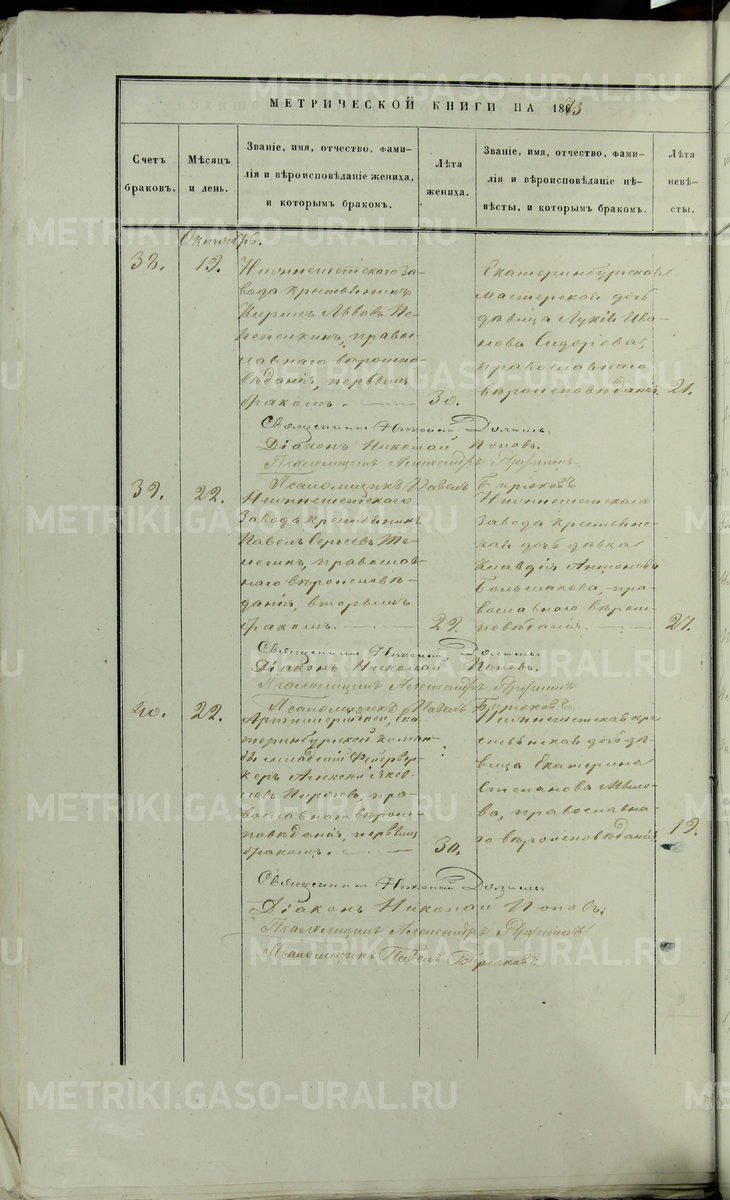 МЕТРИЧЕСКОЙ КНИГИ НА 1873
Счетъ
браковъ.
Мѣсяцъ
и день.
Званіе, имя, отчество, фами-
лія и вѣроисповѣданіе жениха,
и которымъ бракомъ.
Лѣта
жениха.
Званіе, имя, отчество, фами-
лія и вѣроисповѣданіе не-
вѣсты, и которымъ бракомъ.
Лѣта
невѣ-
сты.
Октябрь.
38.
19.
Нижнеисетскаго За-
вода крестьянинъ
Львовъ
право-
славнаго вѣроиспо-
вѣданія, первымъ
бракомъ.
30.
Екатеринбургская
мастерской дочь
дѣвица Лукія Ива-
нова Сидорова,
православнаго
вѣроисповѣданія.
21.
Священникъ Николай
Діаконъ Николай Поповъ.
Псаломщикъ Александръ
Псаломщикъ Павелъ Бирюковъ
39.
22.
Нижнеисетскаго
Завода крестьянинъ
Павелъ
православ-
наго вѣроисповѣ-
данія, вторымъ
бракомъ.
29.
Нижнеисетскаго
Завода крестьянс-
кая дочь дѣвка
Клавдія Антонова
Большакова, пра-
вославнаго вѣроис-
повѣданія.
27.
Священникъ Николай
Діаконъ Николай Поповъ.
Псаломщикъ Александръ
Псаломщикъ Павелъ Бирюковъ
40.
22.
Ека-
теринбургской коман-
ды младшій Фейервер-
керъ Алексѣй Яков-
левъ Пироговъ, пра-
вославнаго вѣроис-
повѣданія, первымъ
бракомъ.
30.
Нижнеисетская кре-
стьянская дочь дѣ-
вица Екатерина
Степанова
православна-
го вѣроисповѣданія.
19.
Священникъ Николай
Діаконъ Николай Поповъ.
Псаломщикъ Александръ
Псаломщикъ Павелъ Бирюковъ
METRIKI.GASO-URAL.RU